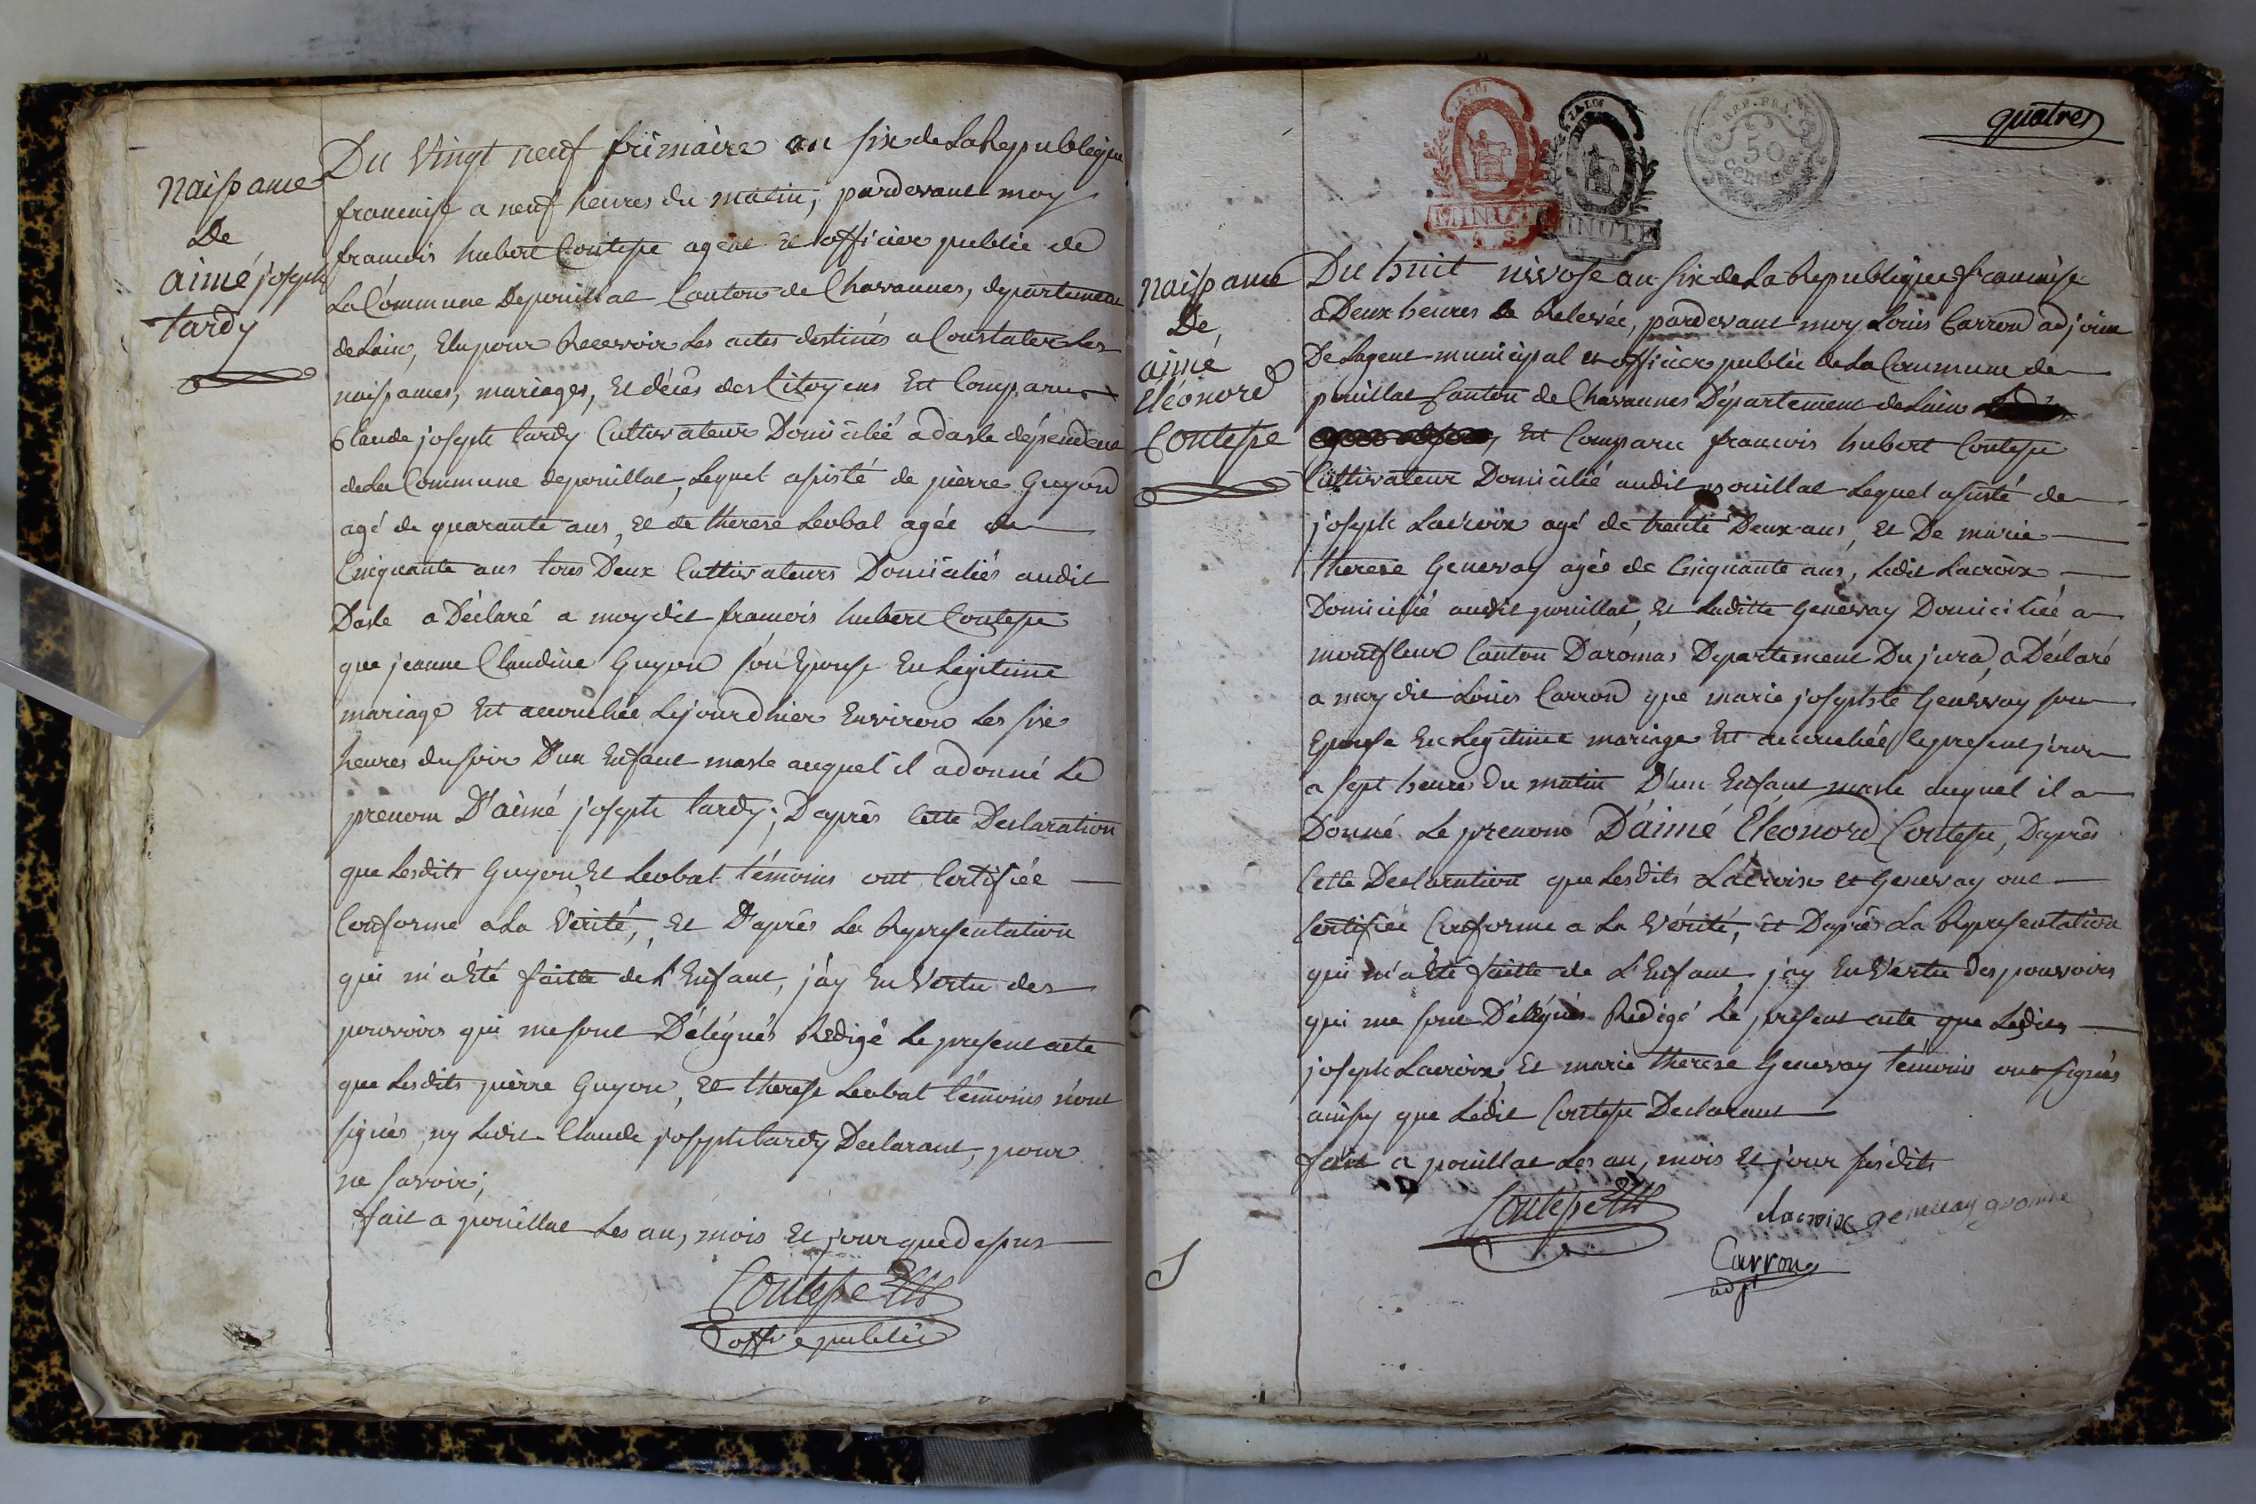 naissance
De
aimé joseph
tardy
Du Vingt neuf frimaire an six de La Republique
francaise a neuf heures du matin, pardevant moy
francois hubert Contesse agent et officier public de
La Commune de pouillat Canton de Chavannes, departement
de Lain, Elu pour Recevoir Les actes destinés a Constater Les
naissances, mariages, Et décès des Citoyens Est Comparu
Claude joseph tardy Cultivateur Domicilié a dasle dépendence
de La Commune de pouillat, Lequel assisté de pierre Guyon
agé de quarante ans, et de therese Leobal agée de
Cinquante ans tous Deux Cultivateurs Domiciliés audit
Dasle a Déclaré a moy dit francois hubert Contesse
que jeanne Claudine Guyon son Epouse En Legitime
mariage Est accouchée Le jourdhier Environ Les six
heures du soir D'un Enfant masle auquel il a donné Le
prenom D'aimé joseph tardy; D'après Cette Declaration
que Lesdits Guyon Et Leobat témoins ont Certifiée
Conforme a La Vérité, Et D'après La Representation
qui m'a Eté faitte de L'Enfant, j'ay En Vertu des
pouvoirs qui me sont Délégués Rédigé Le present acte
que Lesdits pierre Guyon, Et therese Leobat témoins n'ont
signés, ny Ledit Claude joseph tardy Declarant, pour
ne savoir;
fait a pouillat Les an, mois Et jour que dessus
Contesse
offier public
quatres
LA LOI
MINUTE
LA LOI
MINUTE
REP. FRA.
50
Centimes
naissance
De
aimé
Eléonord
Contesse
Du huit nivose an six de La Republique francaise
a Deux heures de Relevée, pardevant moy Louis Carron adjoint
De Lagent municipal et officier public de La Commune de
pouillat Canton de Chavannes Département de Lain
Est Comparu francois hubert Contesse
Cultivateur Domicilié audit pouillat Lequel assisté de
joseph Lacroix agé de trente Deux ans, et De marie
therese Genevay agée de Cinquante ans, Ledit Lacroix
Domicilié audit pouillat, et Laditte Genevay Domiciliée a
montfleur Canton Darómas Departement Du jura, a Déclaré
a moy dit Louis Carron que marie josephte Genevay son
Epouse En Legitime mariage Est accouchée le present jour
a sept heures du matin D'un Enfant masle auquel il a
Donné Le prenom D'aimé Eléonord Contesse, D'après
Cette Declaration que Lesdits Lacroix et Genevay ont
Certifiée Conforme a La Vérité, et D'après La Representation
qui m'a Eté faitte de L'Enfant, j'ay En Vertu des pouvoirs
qui me sont Délégués Rédigé Le présent acte que Lesdits
joseph Lacroix Et marie therese Genevay témoins ont signés
ainsy que Ledit Contesse Declarant
fait a pouillat Les an, mois Et jour susdits
Contesse
Lacroix genevay
Carron
adjt